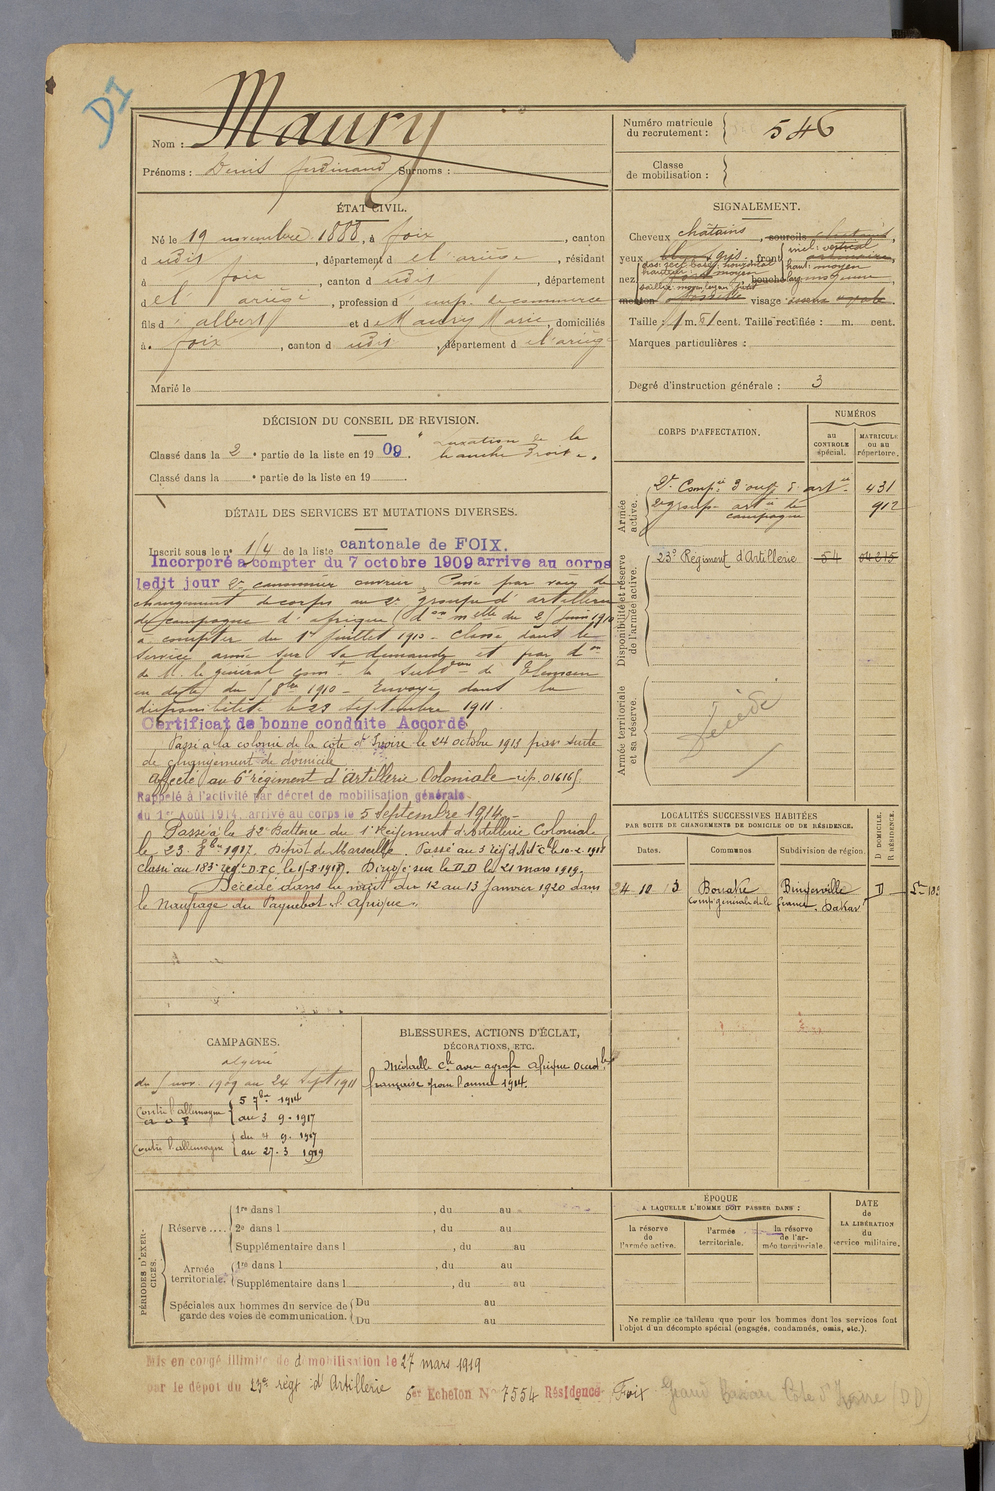 D1
Nom : Maury
Prénoms : Denis Ferdinand Surnoms :
Numéro matricule du recrutement : 546
Classe de mobilisation :
ÉTAT CIVIL.
Né le 19 novembre 1888, à Foix, canton
d udit, département d e l'ariège, résidant
à foix, canton d udit, département
d e l'ariège, profession d' emp. de commerce
fils d' albert et d e Maury Marie, domiciliés
à foix, canton d udit, département d e l'ariège
Marié le
SIGNALEMENT.
Cheveux châtains, sourcils châtains,
yeux gris, front incl: vertical
haut: moyen
nez dos: rect base: horizontal
hauteur: moyen bouche larg moyenne,
saillie moyen larg: petit
menton visage ovale
Taille : 1 m. 61 cent. Taille rectifiée : m. cent.
Marques particulières :
Degré d'instruction générale : 3
DÉCISION DU CONSEIL DE REVISION.
Classé dans la 2e partie de la liste en 1909 luxation de la
hanche droite.
Classé dans la e partie de la liste en 19
CORPS D'AFFECTATION.
NUMÉROS
au CONTROLE spécial.
MATRICULE ou au répertoire.
Armée active.
2e Compie d'ouv. d'artie 431
2e group. artie de campagne 912
Disponibilité et réserve de l'armée active.
23e Régiment d'Artillerie 54 04215
Armée territoriale et sa réserve.
Décédé
DÉTAIL DES SERVICES ET MUTATIONS DIVERSES.
Inscrit sous le n° 1/4 de la liste cantonale de FOIX.
Incorporé à compter du 7 octobre 1909 arrive au corps
ledit jour 2e canonnier ouvrier, Passé par voie de
changement de corps au 2e groupe d'artillerie
de campagne d'afrique don melle du 2 juin 1910
à compter du 1er juillet 1910. Classé dans le
service armé sur sa demande et par don
de M. le général comt la subdon de Tlemcen
en date du 8bre 1910 - Envoyé dans la
disponibilité le 23 septembre 1911.
Certificat de bonne conduite Accordé
Passé à la colonie de la côte d'Ivoire le 24 octobre 1913 par suite
de changement de domicile
Affecté au 6e régiment d'Artillerie Coloniale rép. 01616
Rappelé à l'activité par décret de mobilisation générale
du 1er Août 1914, arrivé au corps le 5 Septembre 1914.
Passé à la 42e Batterie du 1er Régiment d'Artillerie Coloniale
le 23. 8bre 1917. Dépôt de Marseille. Passé au 3 régt d'Art Cle le 10.2.1918
Classé au 183e régt D.P.C. le 1-8-1918. Dirigé sur le D.D le 21 mars 1919.
Décédé dans la nuit du 12 au 13 Janvier 1920 dans
le Naufrage du Paquebot "l'Afrique".
LOCALITÉS SUCCESSIVES HABITÉES
PAR SUITE DE CHANGEMENTS DE DOMICILE OU DE RÉSIDENCE.
Dates. Communes Subdivision de région. D DOMICILE. R RÉSIDENCE.
24 10 13 Bouaké Bingerville D
Comp générale de la france. Dakar
CAMPAGNES.
algérie
du nov. 1909 au 24 Sept 1911
Contre l'allemagne
a o f
5 7bre 1914
au 3 9. 1917
Contre l'allemagne
du 4 9. 1917
au 27. 3 1919
BLESSURES, ACTIONS D'ÉCLAT,
DÉCORATIONS, ETC.
Médaille Cle avec agrafe Afrique Occidle
française pour l'année 1914.
PÉRIODES D'EXERCICES.
Réserve ....
1re dans l , du au
2e dans l , du au
Supplémentaire dans l , du au
Armée territoriale.
1re dans l , du au
Supplémentaire dans l , du au
Spéciales aux hommes du service de garde des voies de communication.
Du au
Du au
ÉPOQUE
A LAQUELLE L'HOMME DOIT PASSER DANS :
la réserve de l'armée active.
l'armée territoriale.
la réserve de l'armée territoriale.
DATE de LA LIBÉRATION du service militaire.
Ne remplir ce tableau que pour les hommes dont les services font
l'objet d'un décompte spécial (engagés, condamnés, omis, etc.).
Mis en congé illimité de démobilisation le 27 mars 1919
par le dépôt du 23e régt d'Artillerie 6er Echelon N° 7554 Résidence Foix
Grand Bassam Côte d'Ivoire (DD)